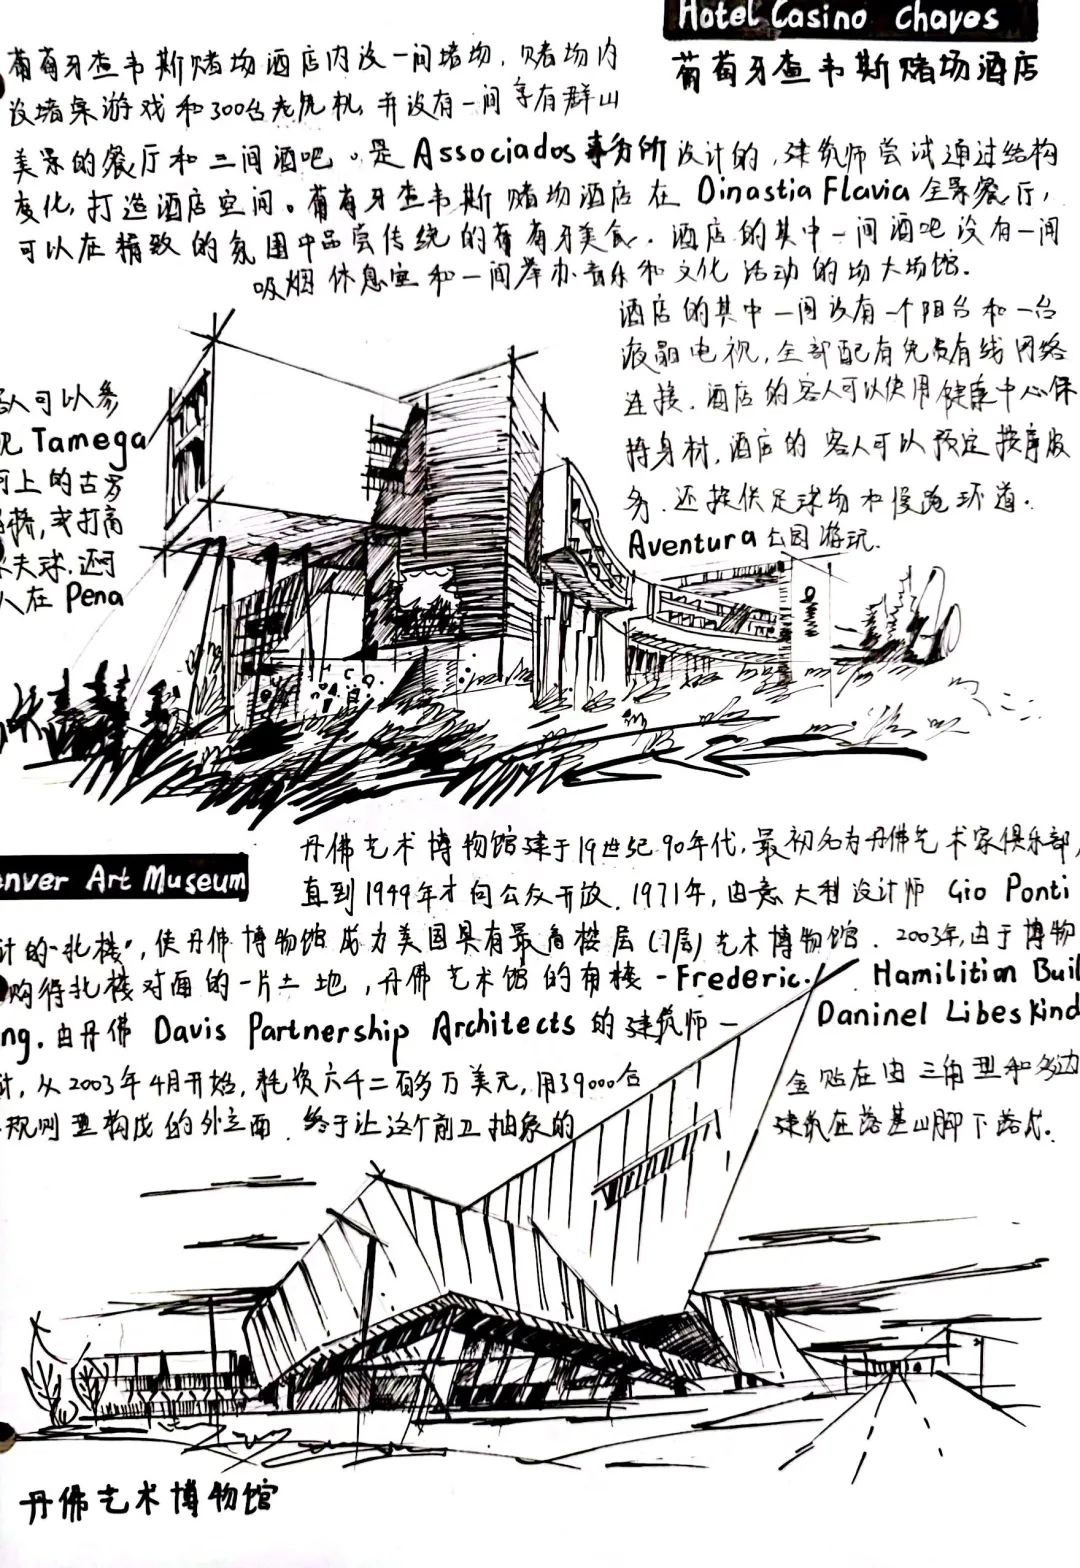 Hotel Casino chaves
葡萄牙查韦斯赌场酒店
葡萄牙查韦斯赌场酒店内设一间堵场，赌场内
设堵桌游戏和300台老虎机，并设有一间享有群山
美景的餐厅和三间酒吧。是Associados事务所设计的，建筑师尝试通过结构
变化，打造酒店空间。葡萄牙查韦斯赌场酒店在Dinastia Flavia全景餐厅，
可以在精致的氛围中品尝传统的葡萄牙美食。酒店的其中一间酒吧设有一间
吸烟休息室和一间举办音乐和文化活动的场大场馆.
酒店的其中一间设有一个阳台和一台
液晶电视，全部配有免费有线网络
连接. 酒店的客人可以使用健康中心保
持身材，酒店的客人可以预定按摩服
务. 还提供足球场和慢跑环道.
Aventura公园游玩.
人可以参
观Tamega
河上的古罗
桥，或打高
夫球. 还可
人在Pena
丹佛艺术博物馆建于19世纪90年代，最初名为丹佛艺术家俱乐部，
nver Art Museum
直到1949年才向公众开放. 1971年，由意大利设计师 Gio Ponti
计的"北楼"，使丹佛博物馆成为美国具有最高楼层(7层)艺术博物馆. 2003年，由于博物
购得北楼对面的一片土地，丹佛艺术馆的有楼-Frederic. Hamilition Buil
ng. 由丹佛 Davis Partnership Architects的建筑师一 Daninel Libeskind
计，从2003年4月开始，耗资六千二百多万美元，用39000台 金贴在由三角型和多边
规则型构成的外立面. 终于让这个前卫抽象的 建筑在落基山脚下落成.
丹佛艺术博物馆